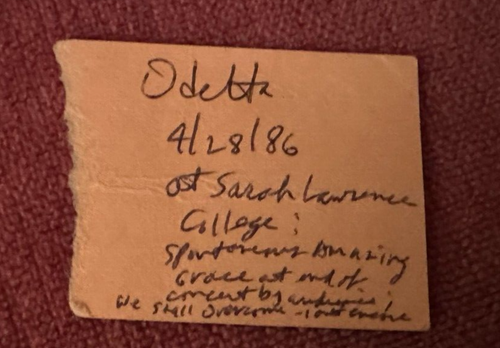 Odetta
4/28/86
at Sarah Lawrence
College:
Spontaneous Amazing
Grace at end of
concert by audience!
We Shall Overcome - last encore